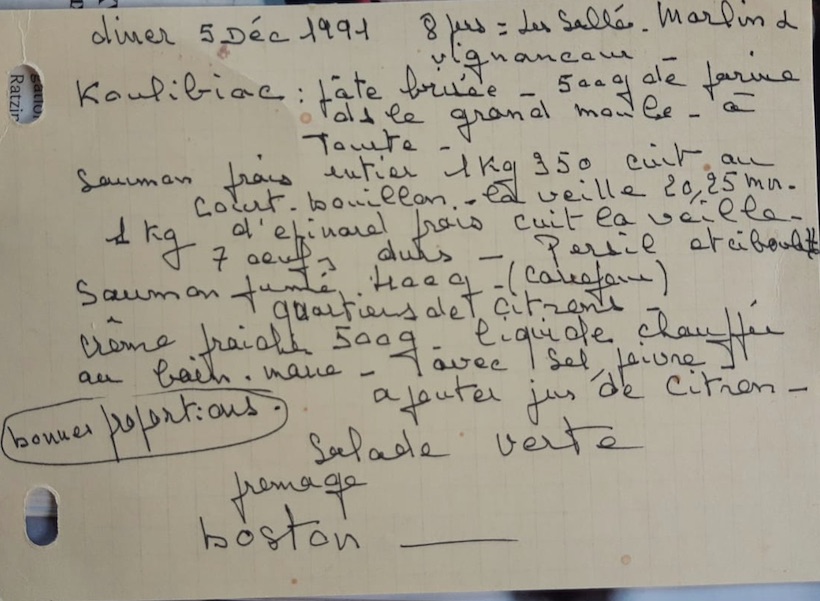 diner 5 Déc 1991 8 prs = Les Sallé. Marlin &
vignanceau -
Koulibiac : pâte brisée - 500g de farine
ds le grand moule - à
Tourte -
Saumon frais entier 1 Kg 350 cuit au
court-bouillon - la veille 20,25 mn.
1 kg d'épinard frais cuit la veille -
7 oeufs durs - Persil et ciboulette
Saumon fumé 400g - (Carrefour)
quartiers de citrons -
crème fraiche 500g - liquide chauffée
au bain. marie - avec sel, poivre
ajouter jus de citron -
bonnes proportions.
Salade verte
fromage
boston
Ratzir